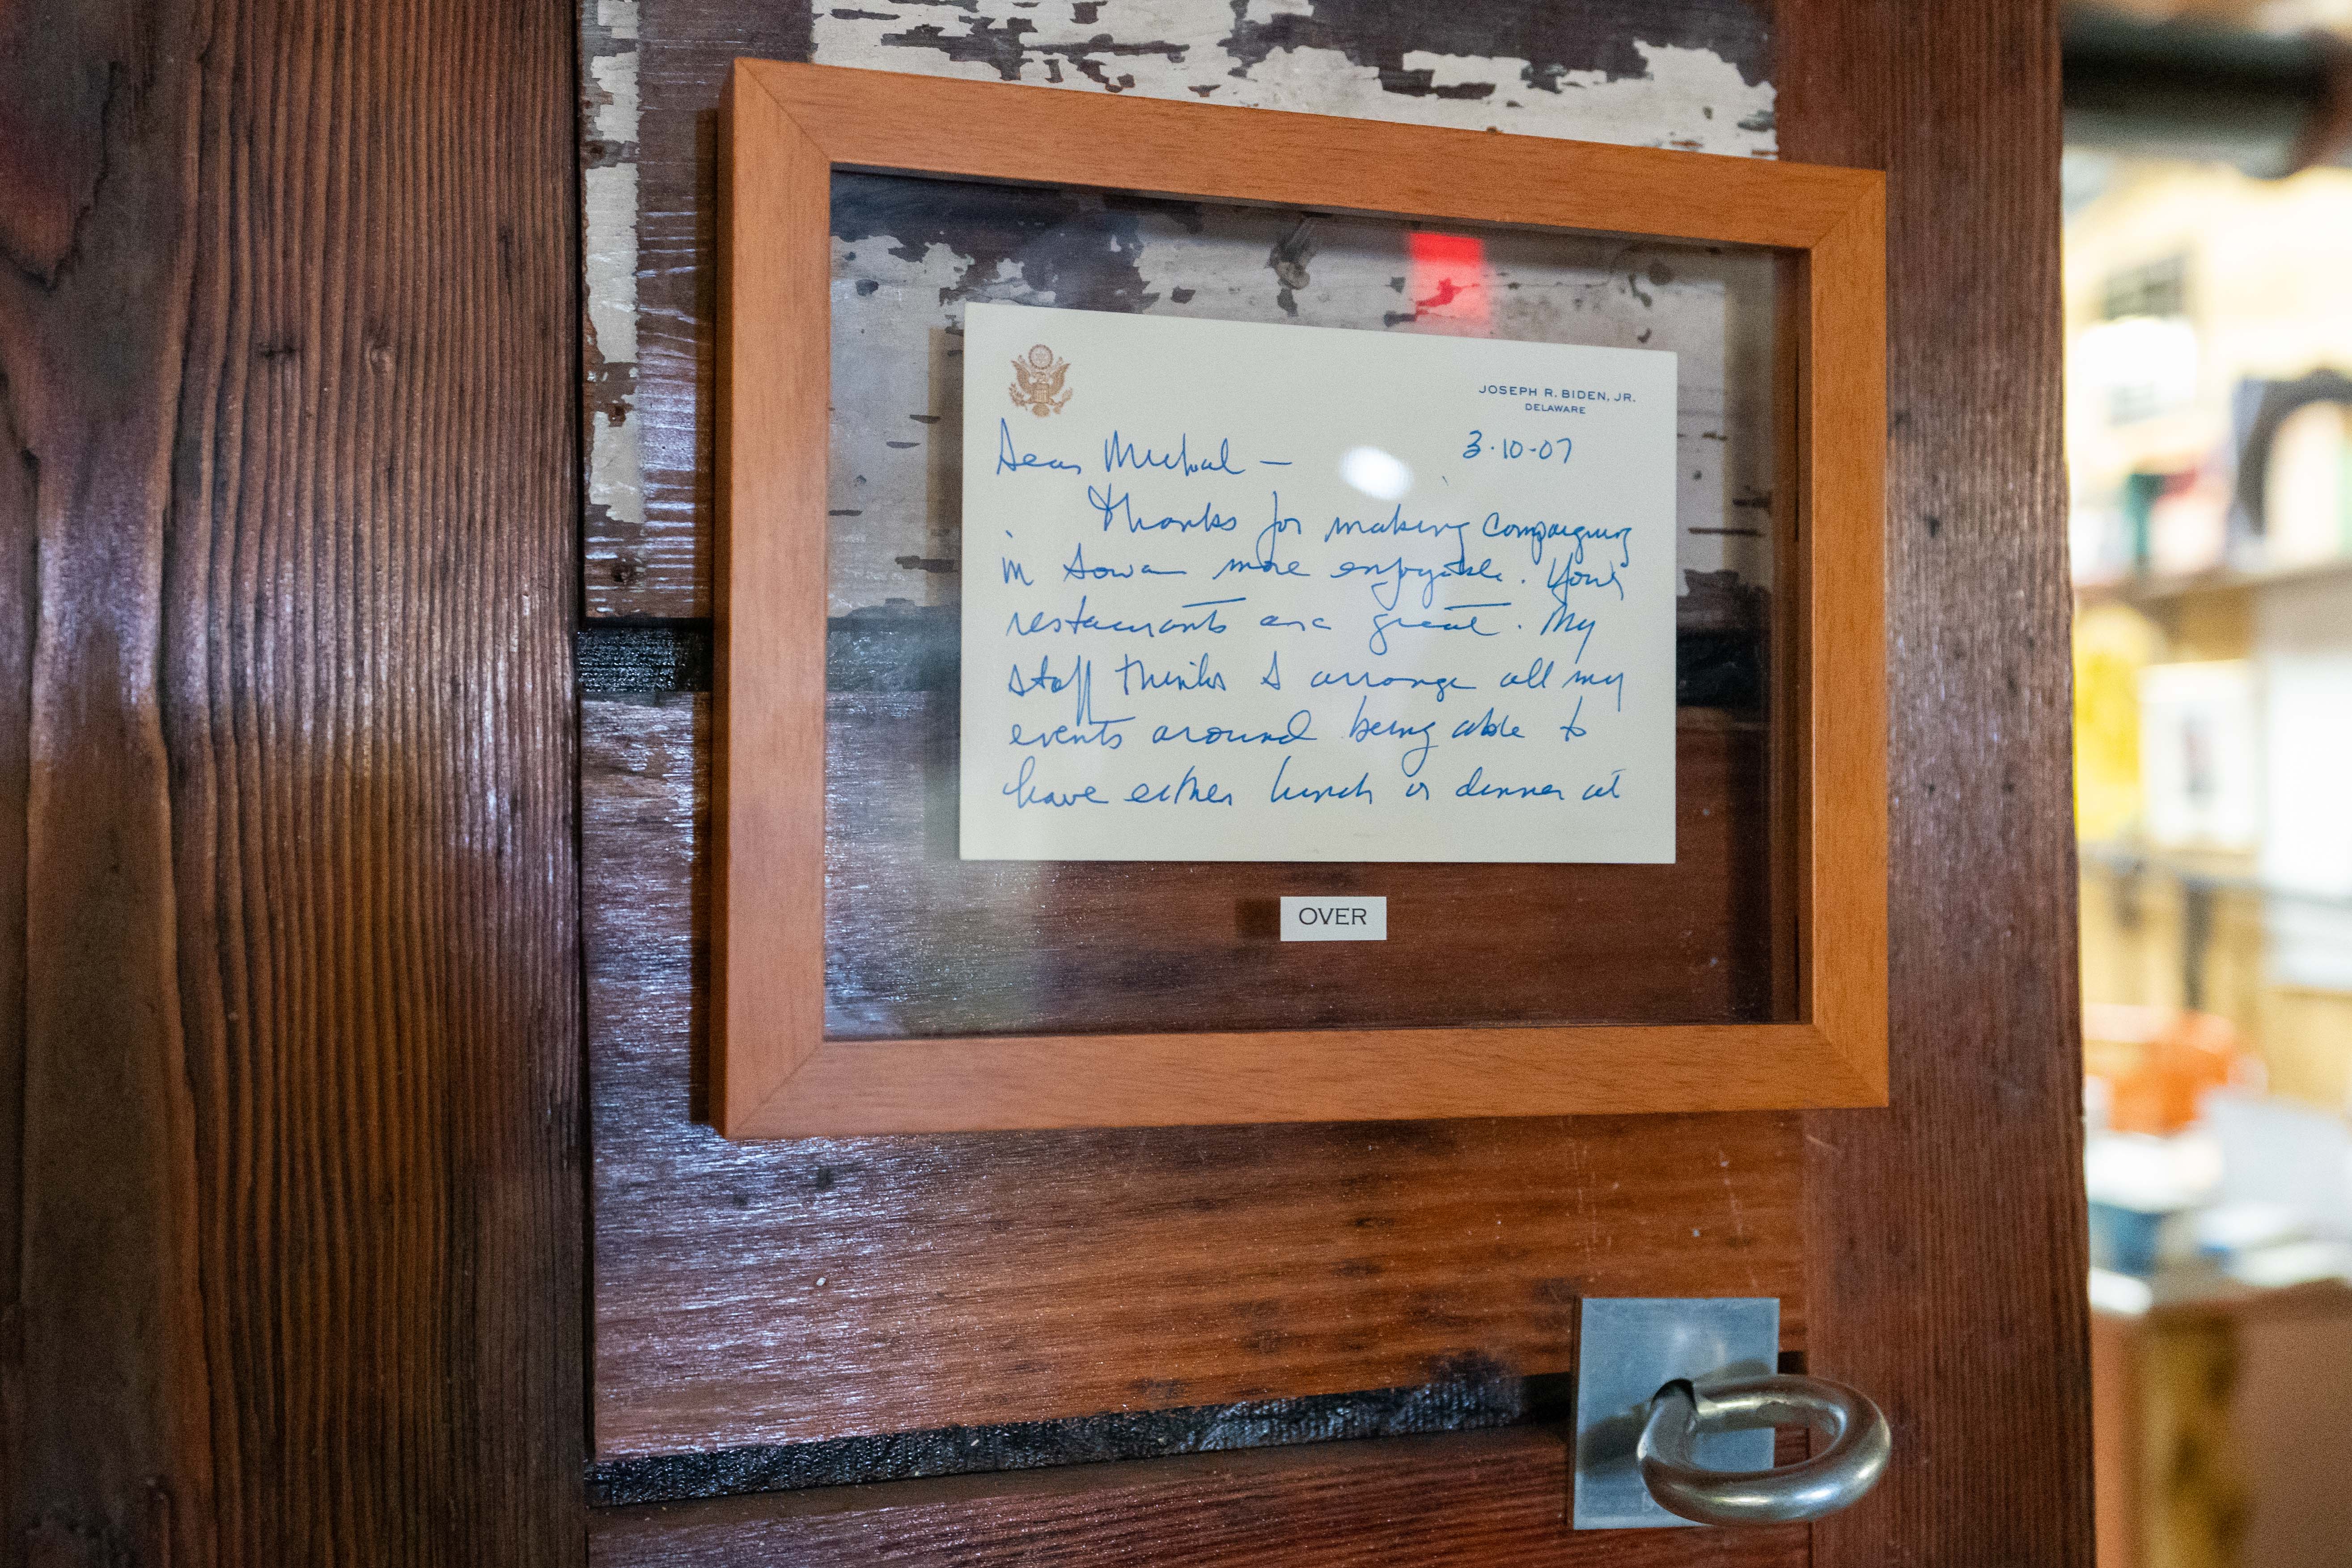 JOSEPH R. BIDEN, JR.
DELAWARE
Dear Michael – 3·10-07
Thanks for making campaigning
in Iowa more enjoyable. Your
restaurants are great. My
staff thinks I arrange all my
events around being able to
have either lunch or dinner at
OVER